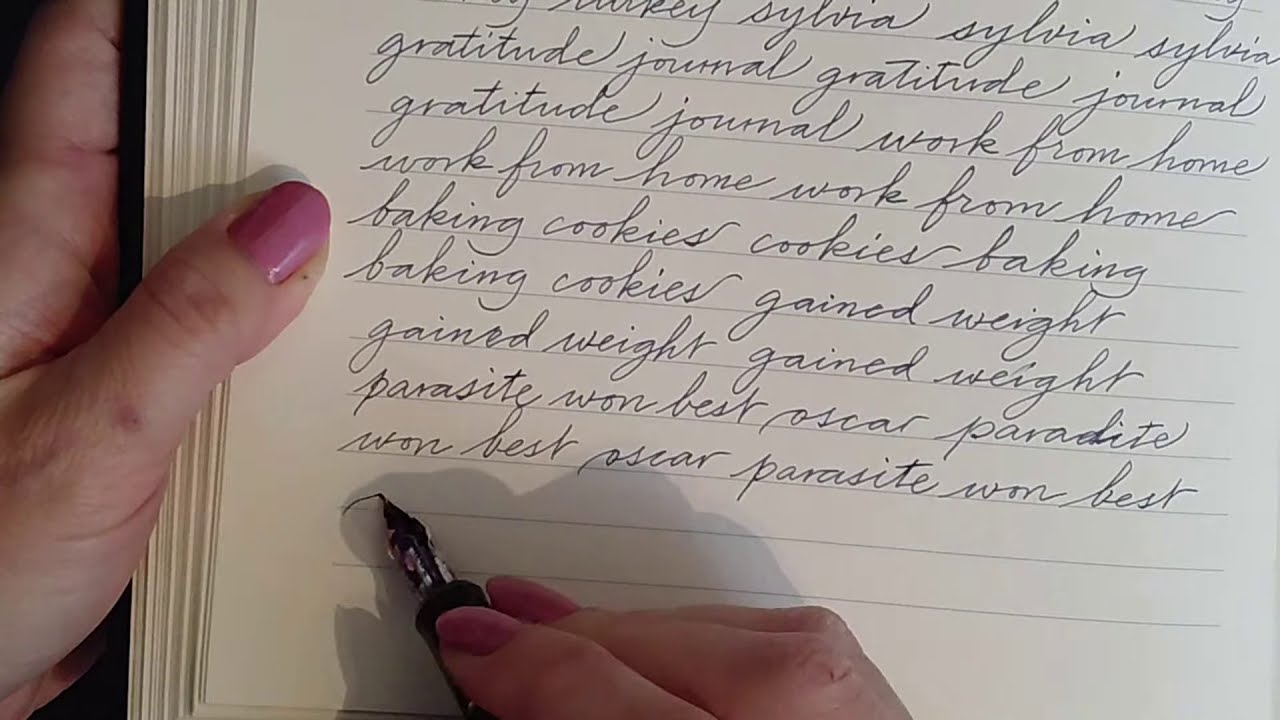 turkey sylvia sylvia sylvia
gratitude journal gratitude journal
gratitude journal work from home
work from home work from home
baking cookies cookies baking
baking cookies gained weight
gained weight gained weight
parasite won best oscar paradite
won best oscar parasite won best